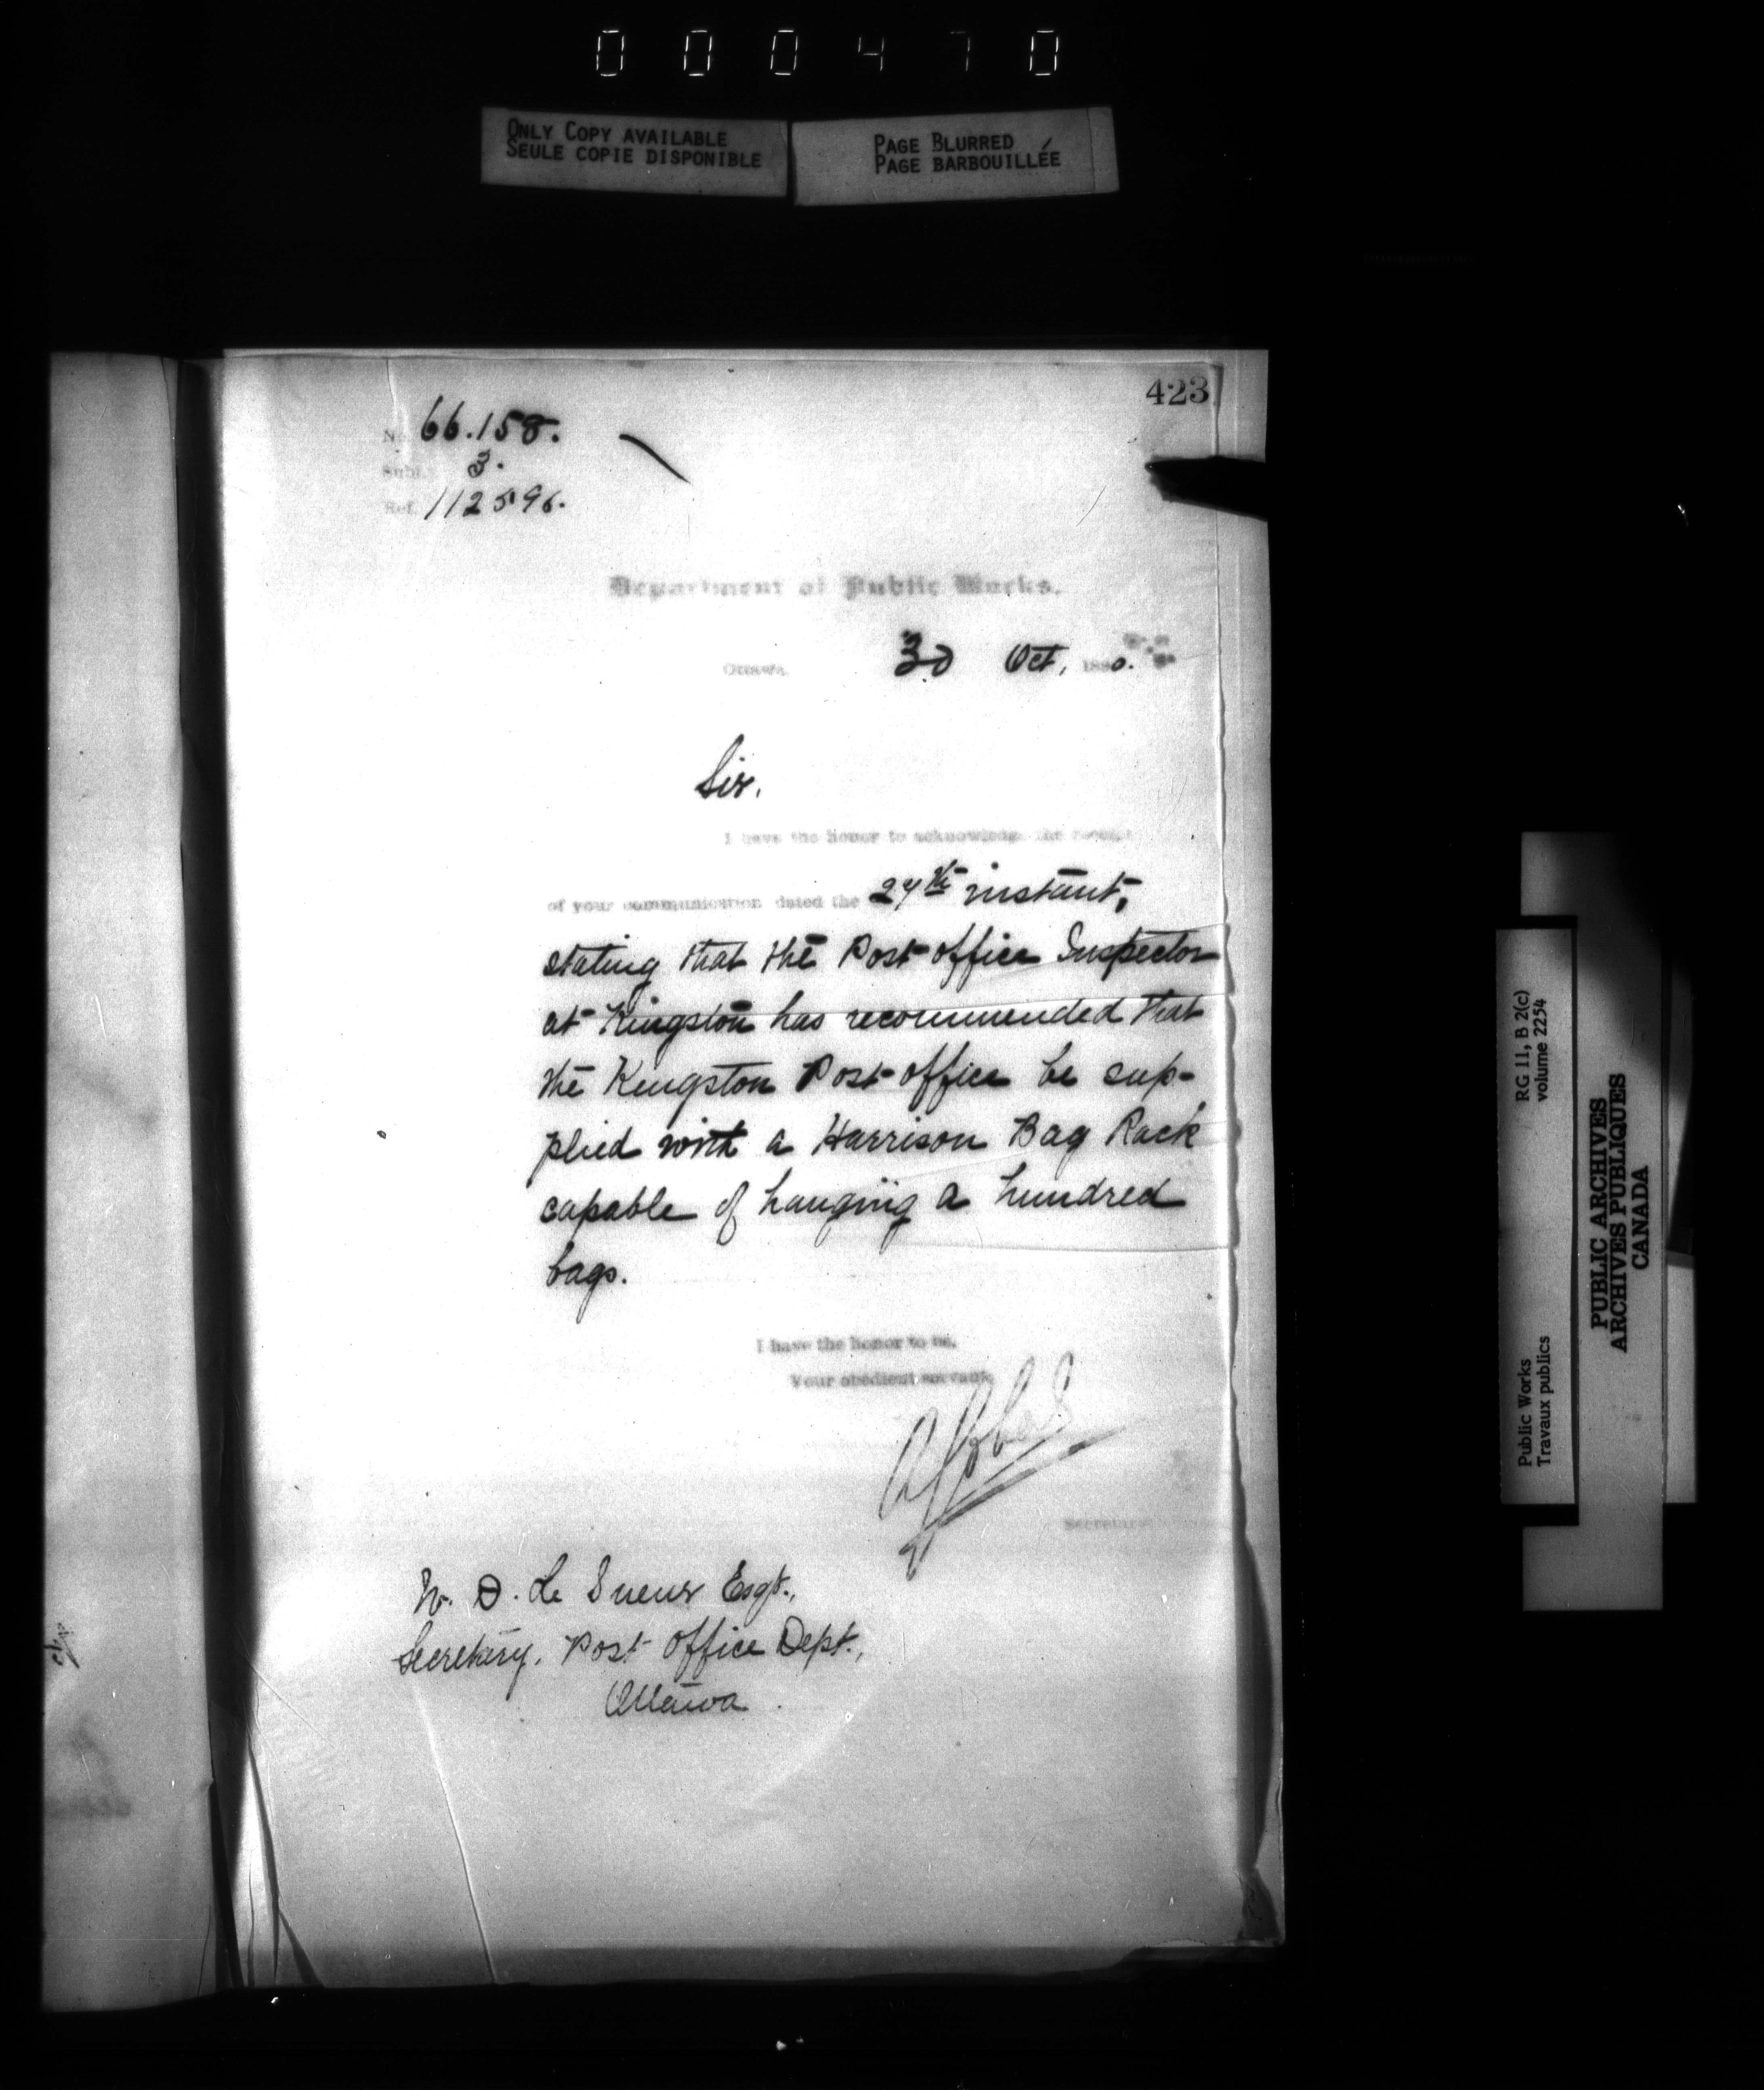 000470
ONLY COPY AVAILABLE
SEULE COPIE DISPONIBLE
PAGE BLURRED
PAGE BARBOUILLÉE
423
No. 66.158.
Subj. 3.
Ref. 112596.
Department of Public Works.
Ottawa, 30 Oct, 1890.
Sir.
I have the honor to acknowledge the receipt
of your communication dated the 27th instant,
stating that the Post office Inspector
at Kingston has recommended that
the Kingston Post office be sup-
plied with a Harrison Bag Rack
capable of hanging a hundred
bags.
I have the honor to be,
Your obedient servant,
Secretary
W. D. Le Sueur Esqr.,
Secretary, Post Office Dept.,
Ottawa.
RG 11, B 2(c)
volume 2254
Public Works
Travaux publics
PUBLIC ARCHIVES
ARCHIVES PUBLIQUES
CANADA